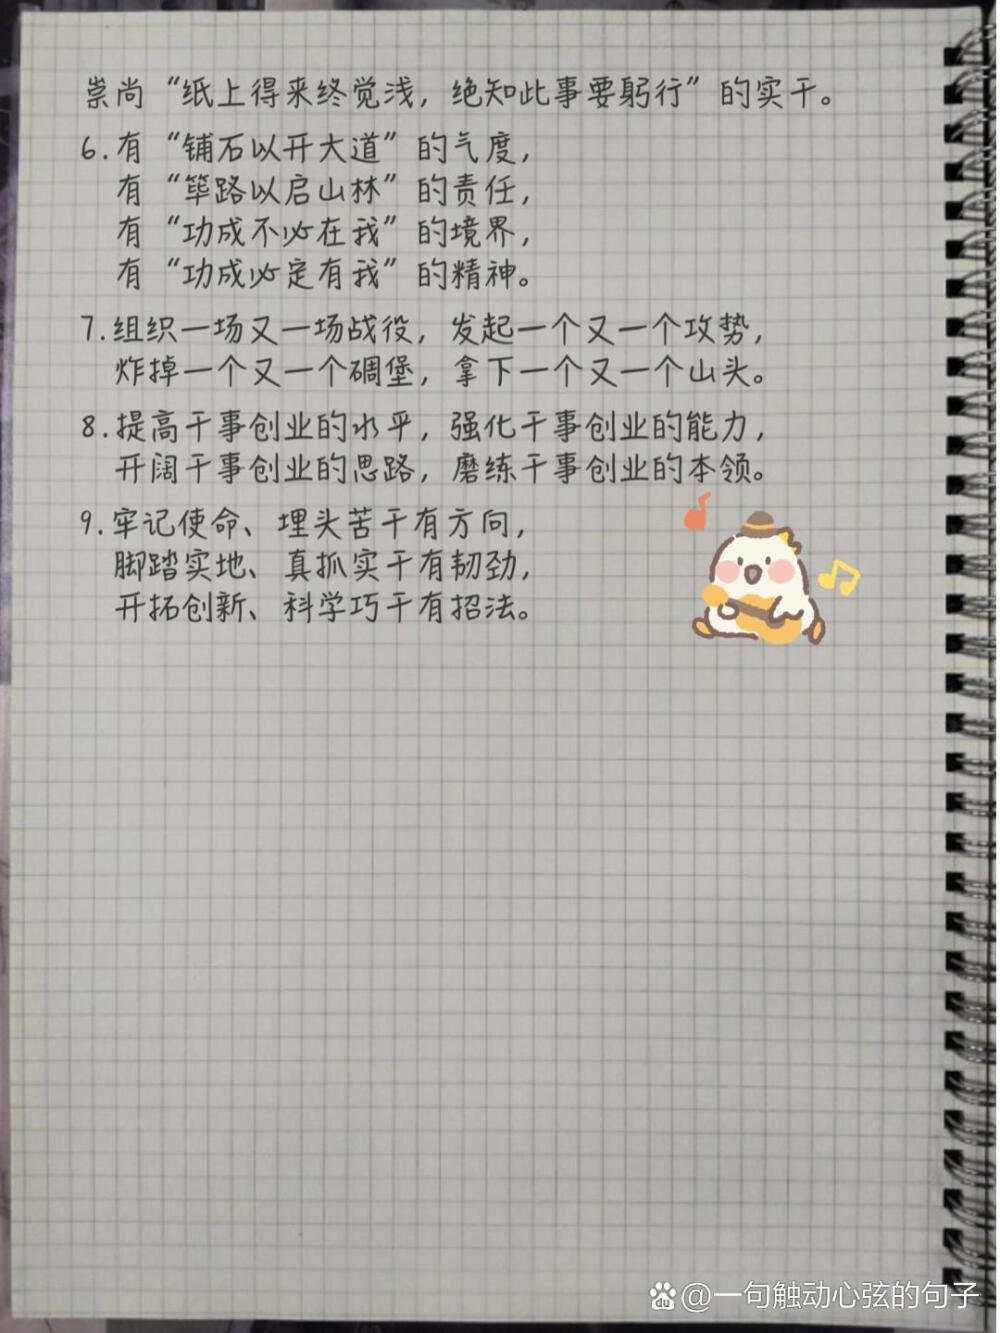 崇尚“纸上得来终觉浅，绝知此事要躬行”的实干。
6.有“铺石以开大道”的气度，
有“筚路以启山林”的责任，
有“功成不必在我”的境界，
有“功成必定有我”的精神。
7.组织一场又一场战役，发起一个又一个攻势，
炸掉一个又一个碉堡，拿下一个又一个山头。
8.提高干事创业的水平，强化干事创业的能力，
开阔干事创业的思路，磨练干事创业的本领。
9.牢记使命、埋头苦干有方向，
脚踏实地、真抓实干有韧劲，
开拓创新、科学巧干有招法。
du @一句触动心弦的句子